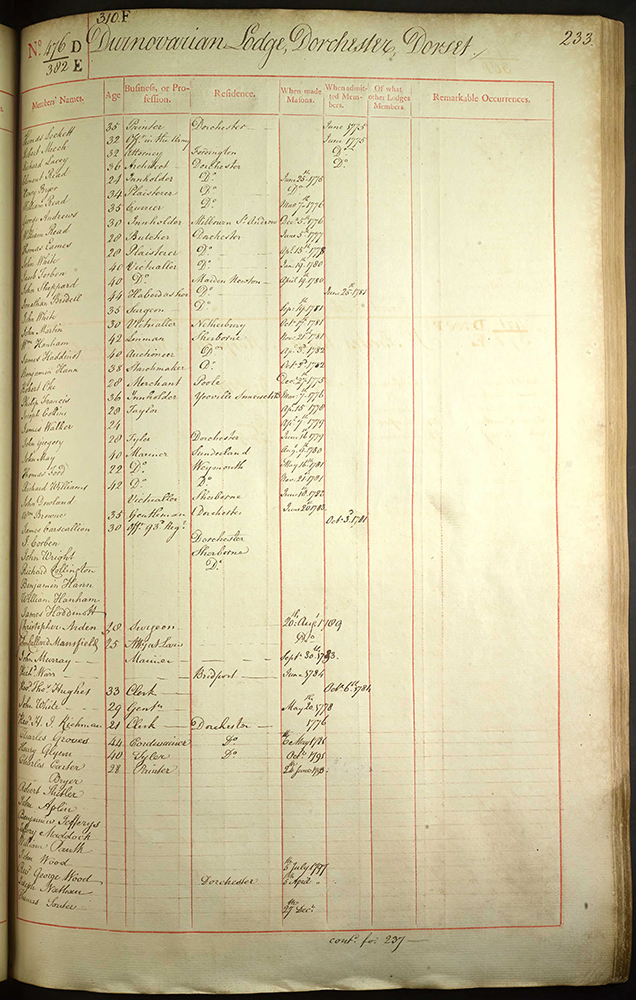 310. F
No. 476 D
382 E
Durnovarian Lodge, Dorchester, Dorset
233.
Members' Names. Age Business, or Profession. Residence. When made Masons. When admitted Members. Of what other Lodges Members. Remarkable Occurrences.
Thomas Lockett 35 Printer Dorchester June 1775
Robert Meech 32 Offr. in the Army June 1775
Richard Lacey 32 Attorney Fordington Do.
Read 36 Architect Dorchester Do.
Henry Bryer 24 Innholder Do. June 25th 1775
William Read 34 Plaisterer Do. Do.
George Andrews 35 Currier Do. 1776
William Read 30 Innholder St. Andrew Decr. 5th 1776
Thomas Eames 28 Butcher Dorchester June 5th 1777
John White 28 Plaisterer Do. Apl. 15th 1778
Jacob Corben 40 Victualler Do. Jan. 19. 1780
John Sheppard 40 Do. Maiden Newton April 19. 1780
Jonathan Bridell 44 Haberdasher Do. June 25th 1781
John White 35 Surgeon Do. Sepr. 19th 1781
John Martin 30 Victualler Netherbury Octr. 17th 1781
Wm. Hanham 42 Linman Sherborne Nov. 21st 1781
James Hoddinot 40 Auctioneer Do. 1782
Benjamin Hann 38 Starchmaker Do. Octr. 1782
Robert Oke 28 Merchant Poole Dec. 27. 1775
Philip Francis 36 Innholder Yeoville Somersets. 1776
Joseph Collins 28 Taylor Apl. 15th 1778
James Walker 24 Apl. 7th 1779
John Gregory 28 Tyler Dorchester June 16th 1779
John May 40 Mariner Sunderland Augt. 9th 1780
Thomas Food 22 Do. Weymouth May 16th 1781
Richard Williams 42 Do. Do. Nov. 21st 1781
John Dowland Victualler Sherborne June 1782
Wm. Browne 35 Gentleman Dorchester June 1783
James Carscallion 30 Offr. 93d. Regt. Octr. 3d. 1781
J. Corben Dorchester
John Wright Sherborne
Richard Collington Do.
Benjamin Hann
William Hanham
James Hoddinott
Christopher Arden 28 Surgeon 20th Augt. 1789
Mansfield 25 Atty at Law Do.
John Murray Mariner Septr. 30th 1783.
Richd. Warr Bridport June 1784
Revd. Thos. Hughes 33 Clerk Octr. 6th 1784
John White 29 Gentn. May 20th 1778
Revd. H. J. Richman 21 Clerk Dorchester 1776
Charles Groves 44 Cordwainer Do. May 1786
Harry Glynn 40 Tyler Do. Octr. 1791
Charles Carter 28 Painter 24th June
Bryer
Robert Butler
John Aplin
Benjamin Jefferys
Murdock
William Pauth
John Wood 5th July
Revd. George Wood 5th April
Joseph Nathan Dorchester
Thomas Souter 27th Decr.
contd. fo: 237